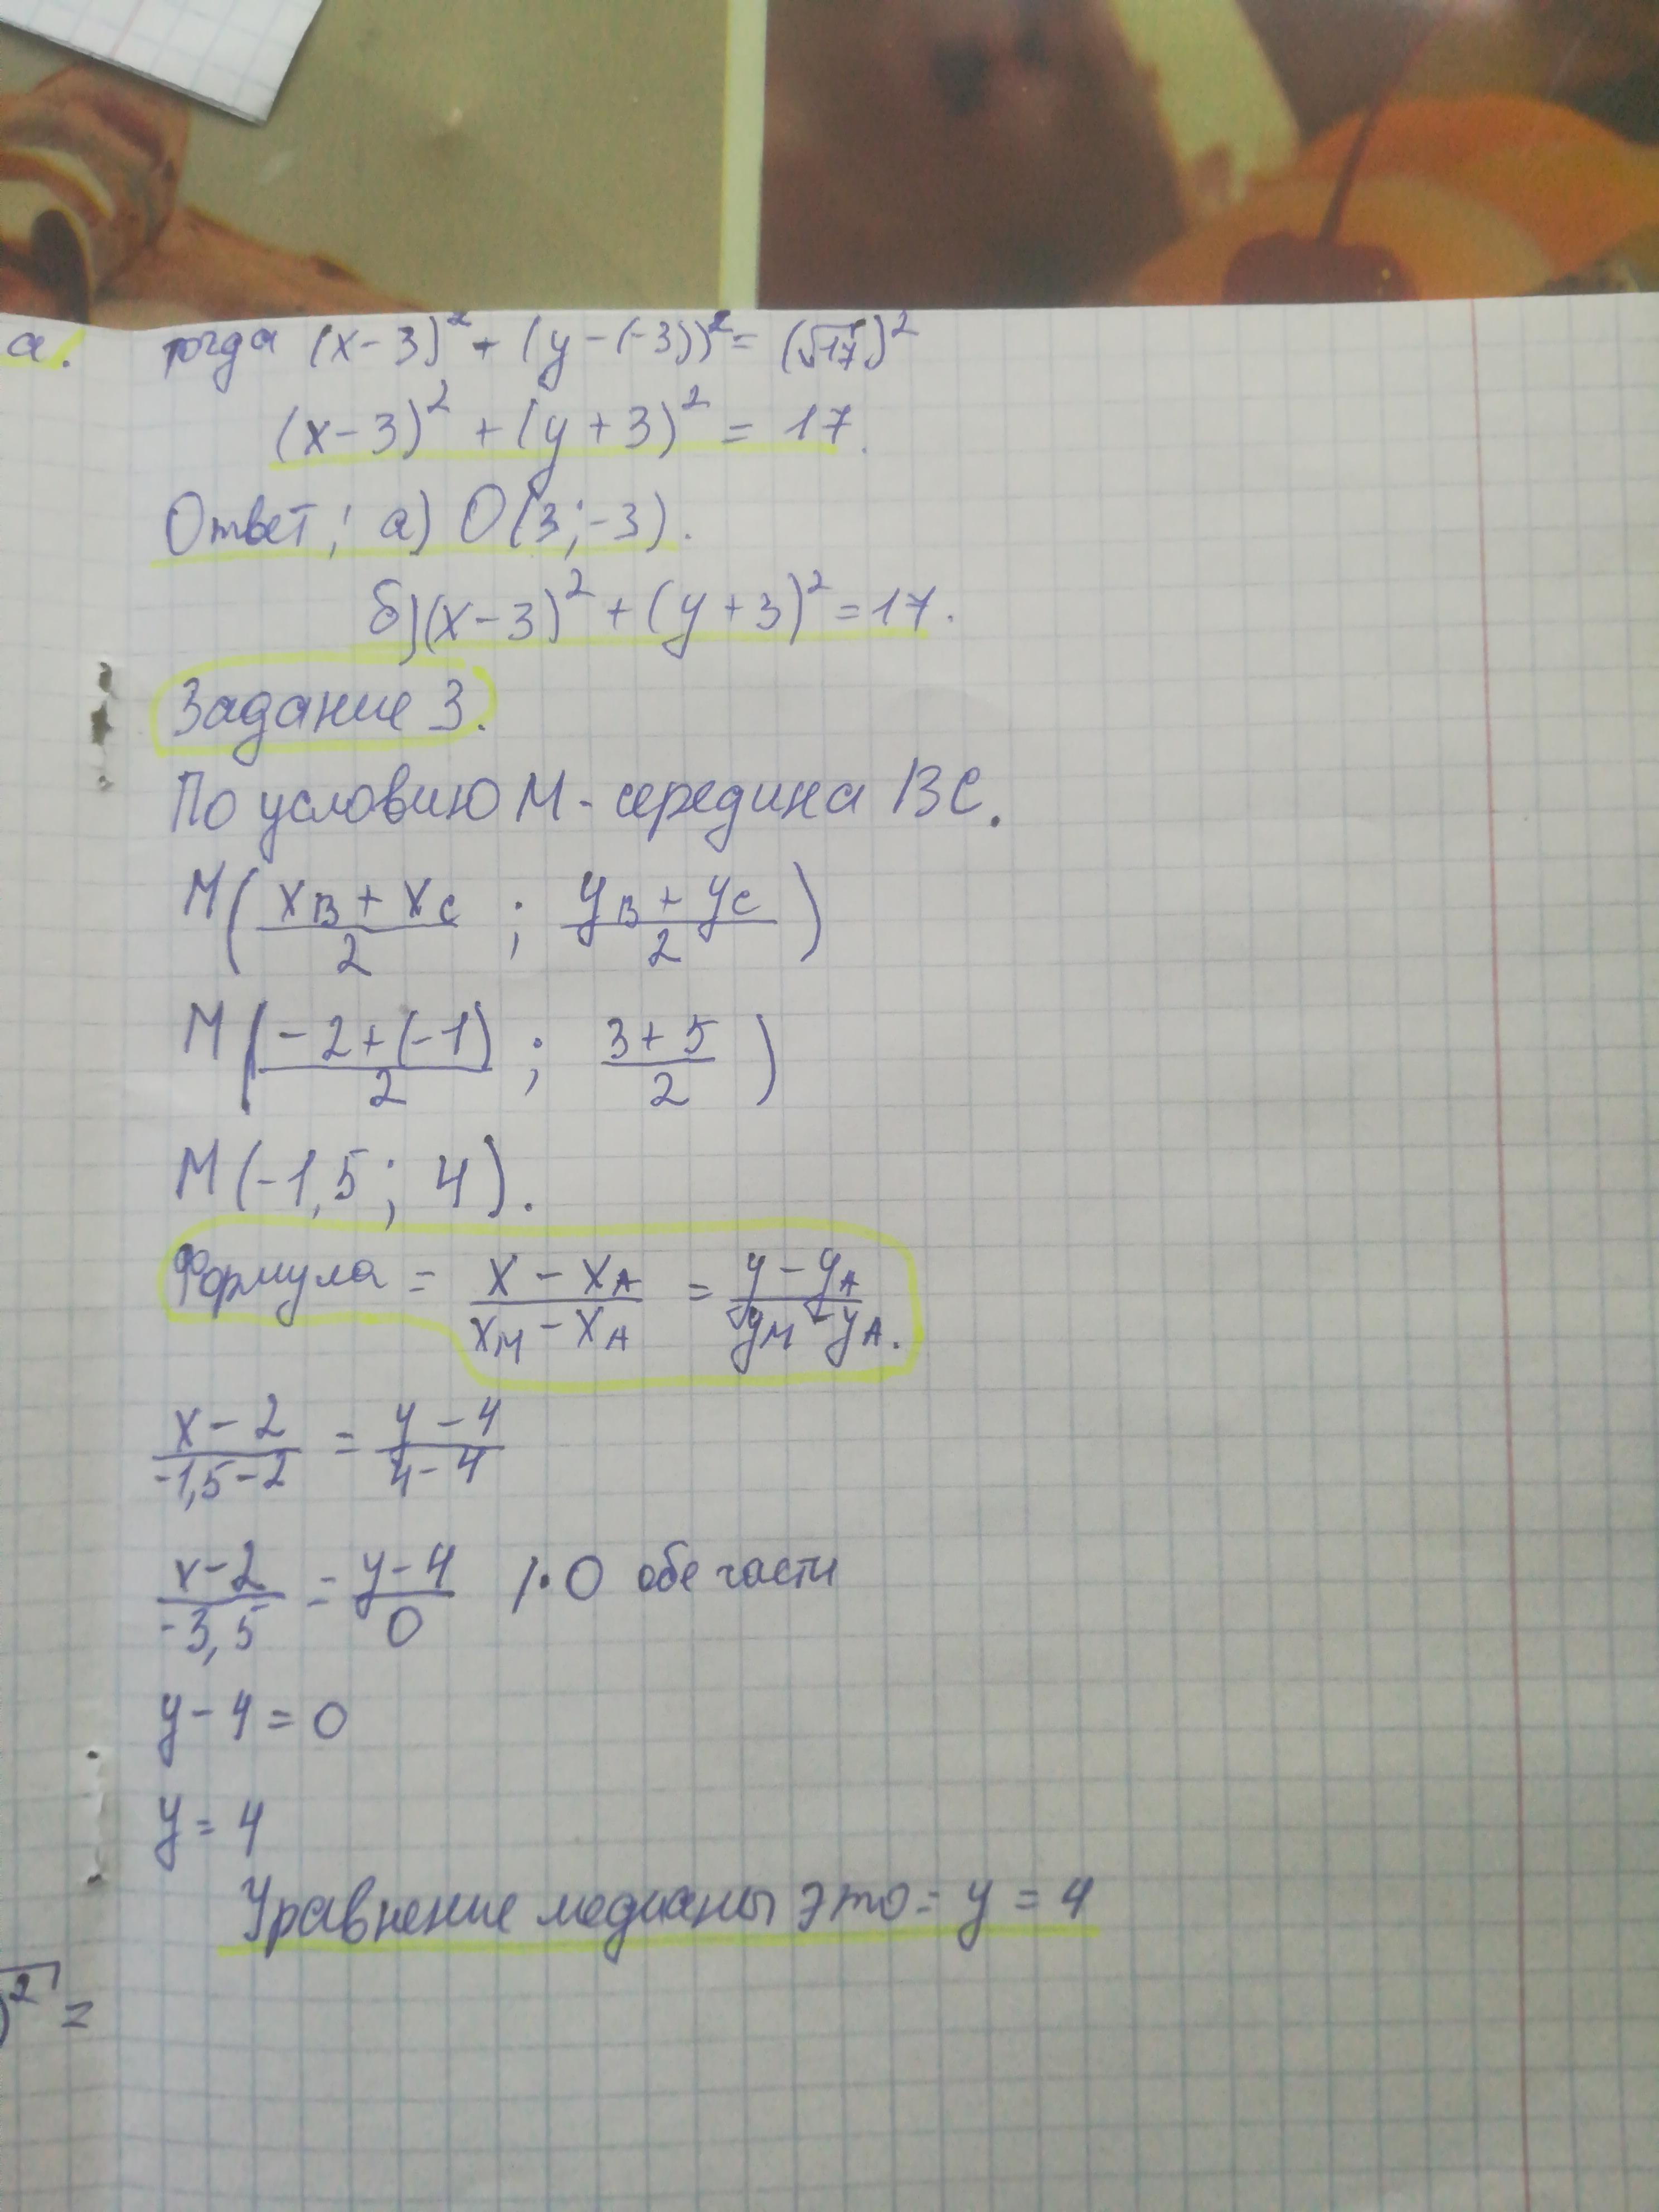 а. тогда (x-3)² + (y-(-3))² = (√17)²
(x-3)² + (y+3)² = 17.
Ответ: а) O(3;-3).
б) (x-3)² + (y+3)² = 17.
Задание 3.
По условию M - середина BC.
M((x_B + x_C)/2 ; (y_B + y_C)/2)
M((-2+(-1))/2 ; (3+5)/2)
M(-1,5; 4).
Формула = (x - x_A)/(x_M - x_A) = (y - y_A)/(y_M - y_A).
(x-2)/(-1,5-2) = (y-4)/(4-4)
(x-2)/(-3,5) = (y-4)/0 /·0 обе части
y-4=0
y=4
Уравнение медианы это = y = 4
)² =